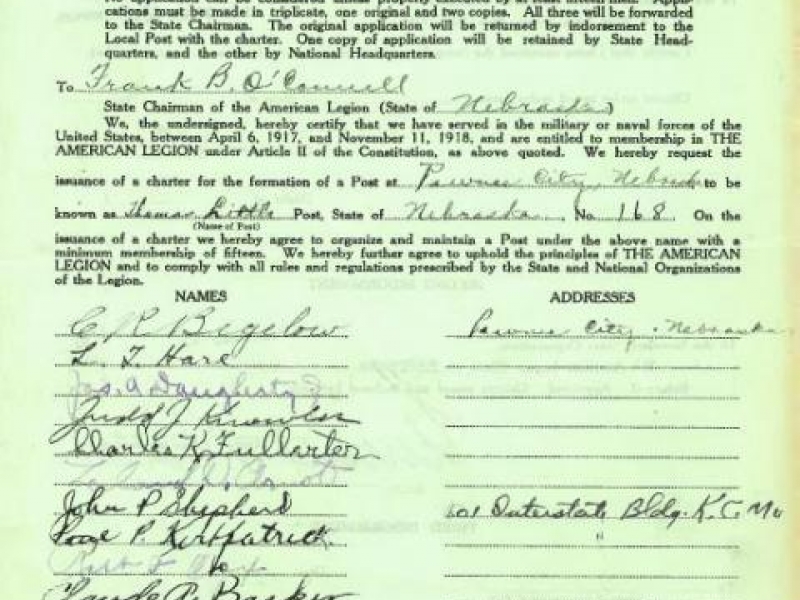 cations must be made in triplicate, one original and two copies. All three will be forwarded
to the State Chairman. The original application will be returned by indorsement to the
Local Post with the charter. One copy of application will be retained by State Head-
quarters, and the other by National Headquarters.
To Frank B. O'Connell
State Chairman of the American Legion (State of Nebraska)
We, the undersigned, hereby certify that we have served in the military or naval forces of the
United States, between April 6, 1917, and November 11, 1918, and are entitled to membership in THE
AMERICAN LEGION under Article II of the Constitution, as above quoted. We hereby request the
issuance of a charter for the formation of a Post at Pawnee City, Nebrask to be
known as Thomas Little Post, State of Nebraska, No. 168. On the
(Name of Post)
issuance of a charter we hereby agree to organize and maintain a Post under the above name with a
minimum membership of fifteen. We hereby further agree to uphold the principles of THE AMERICAN
LEGION and to comply with all rules and regulations prescribed by the State and National Organizations
of the Legion.
NAMES ADDRESSES
C. R. Bigelow Pawnee City, Nebraska
L. T. Hare
Jas. A. Daugherty
Judd J. Knowles
Charles K. Fullarton
John P Shepherd 601 Interstate Bldg. K.C. Mo
P. Kirkpatrick "
Claude A. Barker